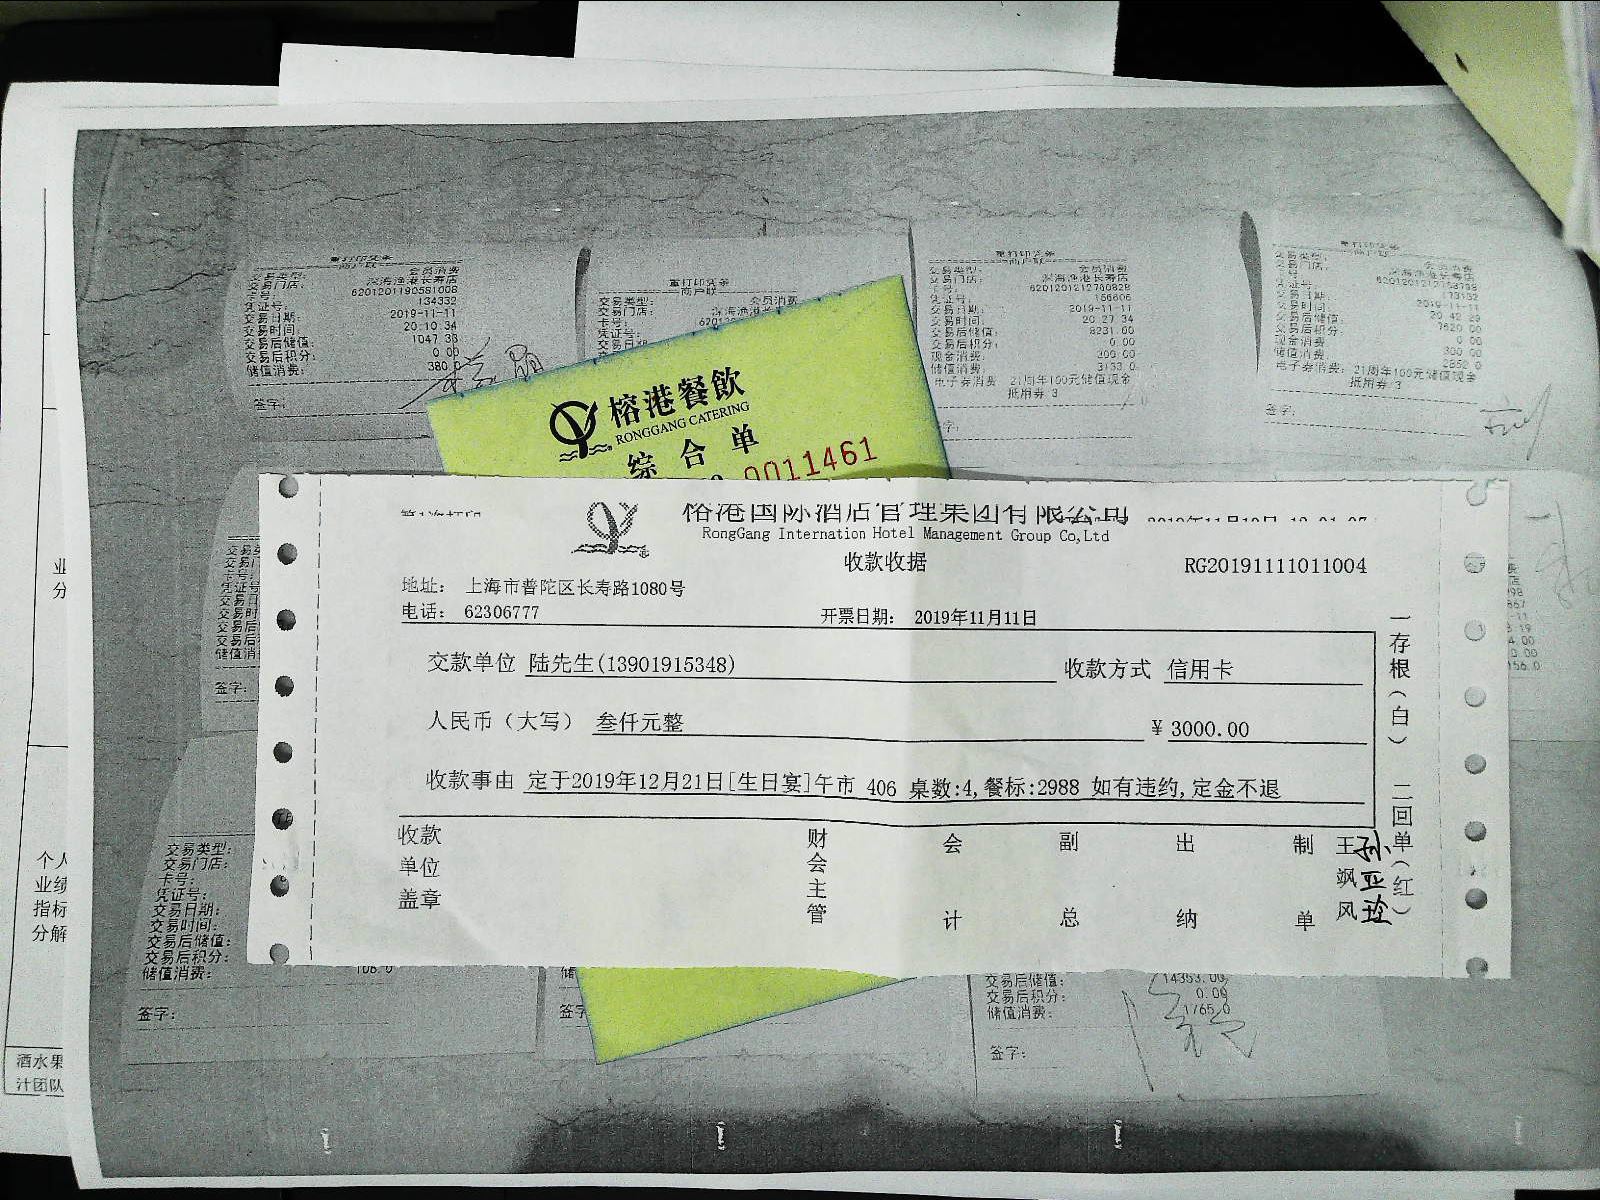 重打印凭条
商户联
交易类型: 会员消费
交易门店: 深海渔港长寿店
卡号: 6201201190581008
凭证号: 134332
交易日期: 2019-11-11
交易时间: 20 10 34
交易后储值: 1047 33
交易后积分: 0 00
储值消费: 380 0
签字:
重打印凭条
商户联
交易类型: 会员消费
交易门店: 深海渔港长寿店
卡号:
凭证号:
重打印凭条
商户联
交易类型: 会员消费
交易门店: 深海渔港长寿店
卡号: 6201201212760828
凭证号: 156606
交易日期: 2019-11-11
交易时间: 20 27 34
交易后储值: 8231 00
交易后积分: 0 00
现金消费: 300 00
储值消费: 3133 0
电子券消费 21周年100元储值现金
抵用券 3
重打印凭条
商户联
交易类型: 会员消费
交易门店: 深海渔港长寿店
卡号:
凭证号: 173132
交易日期: 2019-11-11
交易时间: 20 42 29
交易后储值: 7620 00
交易后积分: 0 00
现金消费: 300 00
储值消费: 2852 0
电子券消费: 21周年100元储值现金
抵用券 3
签字:
榕港餐飲
RONGGANG CATERING
综合单
0011461
榕港国际酒店管理集团有限公司
RongGang Internation Hotel Management Group Co,Ltd
收款收据
RG20191111011004
地址: 上海市普陀区长寿路1080号
电话: 62306777
开票日期: 2019年11月11日
交款单位 陆先生(13901915348) 收款方式 信用卡
人民币（大写） 叁仟元整 ¥ 3000.00
收款事由 定于2019年12月21日[生日宴]午市 406 桌数:4,餐标:2988 如有违约,定金不退
收款单位盖章
财会主管
会计
副总
出纳
制单
王飒风
孙亚玲
一存根（白） 二回单（红）
储值消
签字:
交易类型:
交易门店:
卡号:
凭证号:
交易日期:
交易时间:
交易后储值:
交易后积分:
储值消费: 106.0
签字:
签字
交易后储值: 14353.00
交易后积分: 0.00
储值消费: 1765.0
签字:
业
分
个人
业绩
指标
分解
酒水果
汁团队